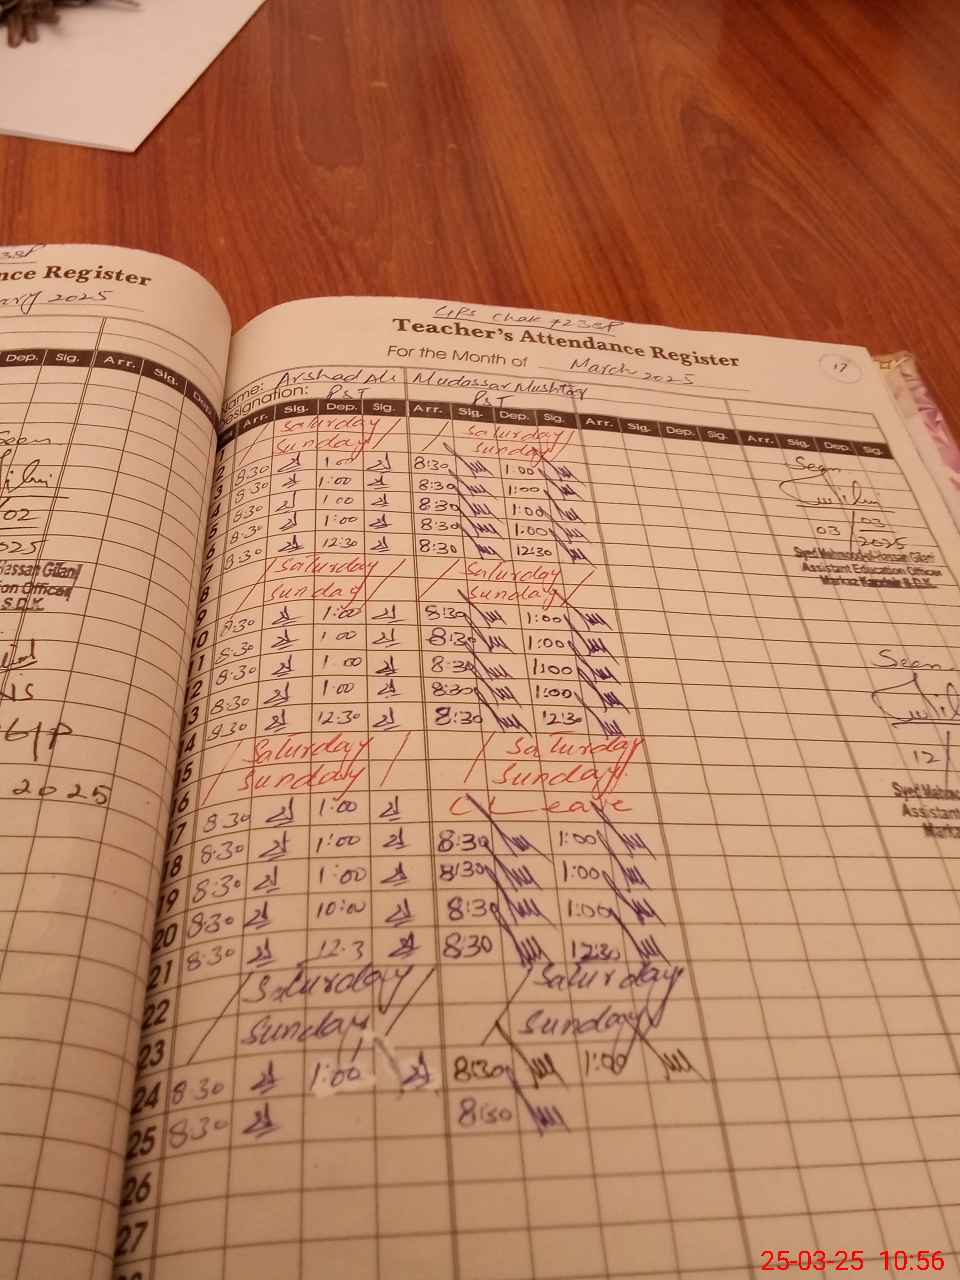 nce Register
2025
Dep. Sig. Arr. Sig.
02
Hassan Gilani
ion Officer
S.D.K.
2025
GPS Chak 723BP
Teacher's Attendance Register
For the Month of March 2025
17
Name: Arshad Ali Mudassar Mushtaq
Designation: PST PST
Arr. Sig. Dep. Sig. Arr. Sig. Dep. Sig. Arr. Sig. Dep. Sig. Arr. Sig. Dep. Sig.
1 Saturday Saturday
2 Sunday Sunday
3 8:30 1:00 8:30 1:00
4 8:30 1:00 8:30 1:00
5 8:30 1:00 8:30 1:00
6 8:30 1:00 8:30 1:00
7 8:30 12:30 8:30 12:30
8 Saturday Saturday
9 Sunday Sunday
10 8:30 1:00 8:30 1:00
11 8:30 1:00 8:30 1:00
12 8:30 1:00 8:30 1:00
13 8:30 1:00 8:30 1:00
14 8:30 12:30 8:30 12:30
15 Saturday Saturday
16 Sunday Sunday
17 8:30 1:00 C Leave
18 8:30 1:00 8:30 1:00
19 8:30 1:00 8:30 1:00
20 8:30 10:00 8:30 1:00
21 8:30 12:3 8:30 12:30
22 Saturday Saturday
23 Sunday Sunday
24 8:30 1:00 8:30 1:00
25 8:30 8:30
26
27
Seen
03/03
2025
Syed Mehmood-ul-Hassan Gilani
Assistant Education Officer
Markaz Kanduir S.D.K.
Seen
12/
Assistant
25-03-25 10:56